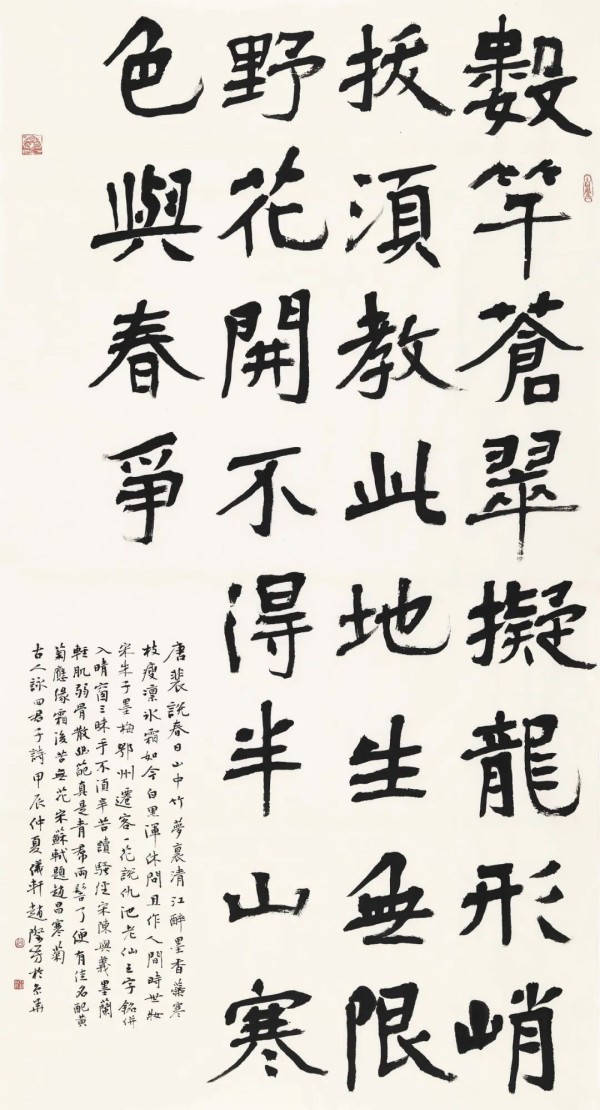 數竿蒼翠擬龍形峭
拔須教此地生無限
野花開不得半山寒
色與春爭
唐裴說春日山中竹夢裏清江醉墨香蕊寒
枝瘦凛冰霜如今白黑渾休問且作人間時世妝
宋朱子墨梅鄂州遷客一花說仇池老仙五字銘併
入晴窗三昧手不須辛苦讀騷經宋陳與義墨蘭
輕肌弱骨散幽葩真是青裙兩髻丫便有佳名配黄
菊應緣霜後苦無花宋蘇軾題趙昌寒菊
古人詠四君子詩甲辰仲夏儀軒趙